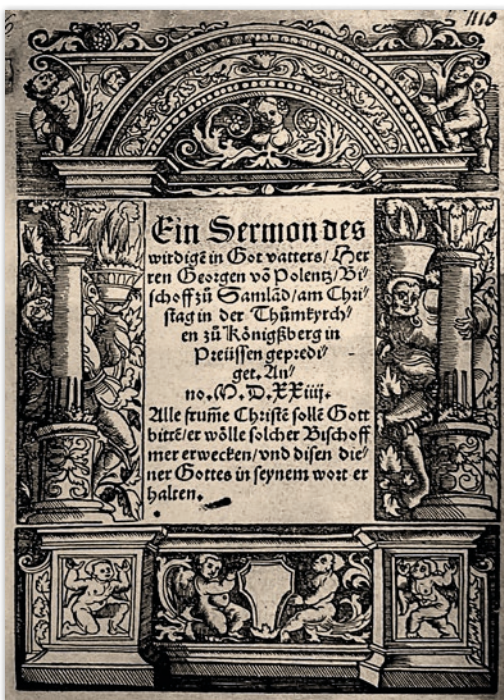 1116
Ein Sermon des
wirdigē in Got vatters/ Her
ren Georgen vō Polentz/ Bi⸗
schoff zů Samlād/ am Chri⸗
stag in der Thůmkyrch⸗
en zů Königßberg in
Preüssen gepredi⸗
get. An⸗
no. M. D. XXiiij.
Alle frum̄e Christē sollē Gott
bittē/ er wölle solcher Bischoff
mer erwecken/ vnd disen die⸗
ner Gottes in seynem wort er
halten.